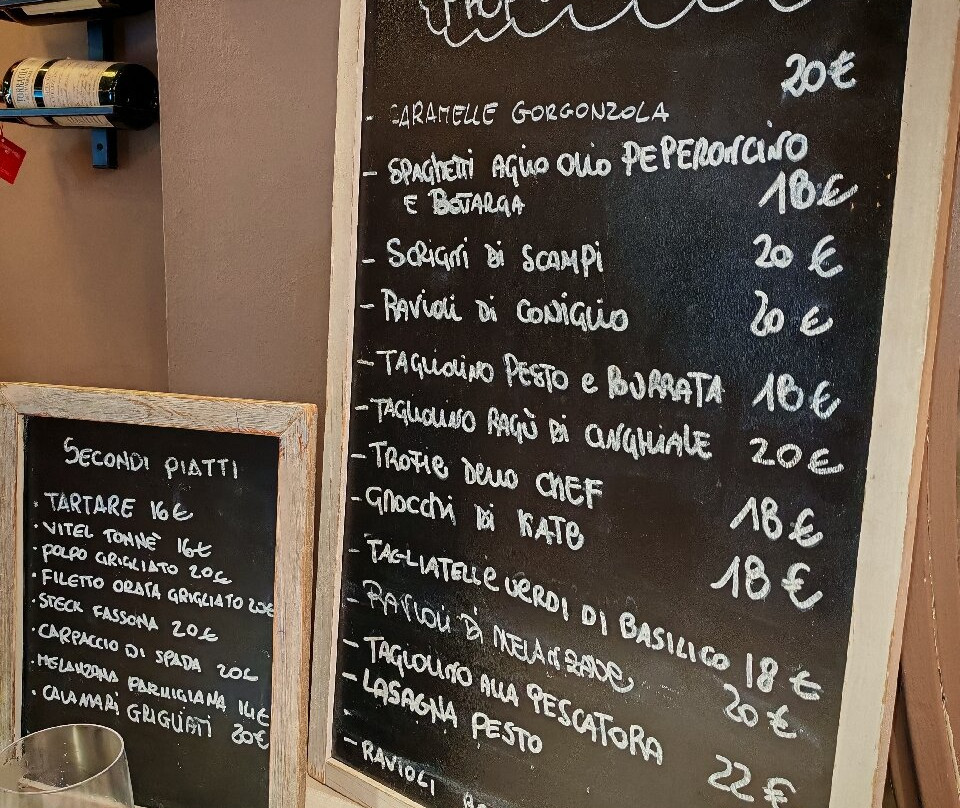 20€
- CARAMELLE GORGONZOLA
- SPAGHETTI AGLIO OLIO PEPERONCINO
E BOTARGA 18€
- SCRIGNI DI SCAMPI 20€
- RAVIOLI DI CONIGLIO 20€
- TAGLIOLINO PESTO e BURRATA 18€
- TAGLIOLINO RAGÙ DI CINGHIALE 20€
- TROFIE DELLO CHEF
- GNOCCHI DI KATE 18€
18€
- TAGLIATELLE VERDI DI BASILICO 18€
- RAVIOLI DI MELANZANE 20€
- TAGLIOLINO ALLA PESCATORA
- LASAGNA PESTO 22€
-
- RAVIOLI
SECONDI PIATTI
· TARTARE 16€
· VITEL TONNÈ 16€
· POLPO GRIGLIATO 20€
· FILETTO ORATA GRIGLIATO 20€
· STECK FASSONA 20€
· CARPACCIO DI SPADA 20€
· MELANZANA PARMIGIANA 14€
· CALAMARI GRIGLIATI 20€